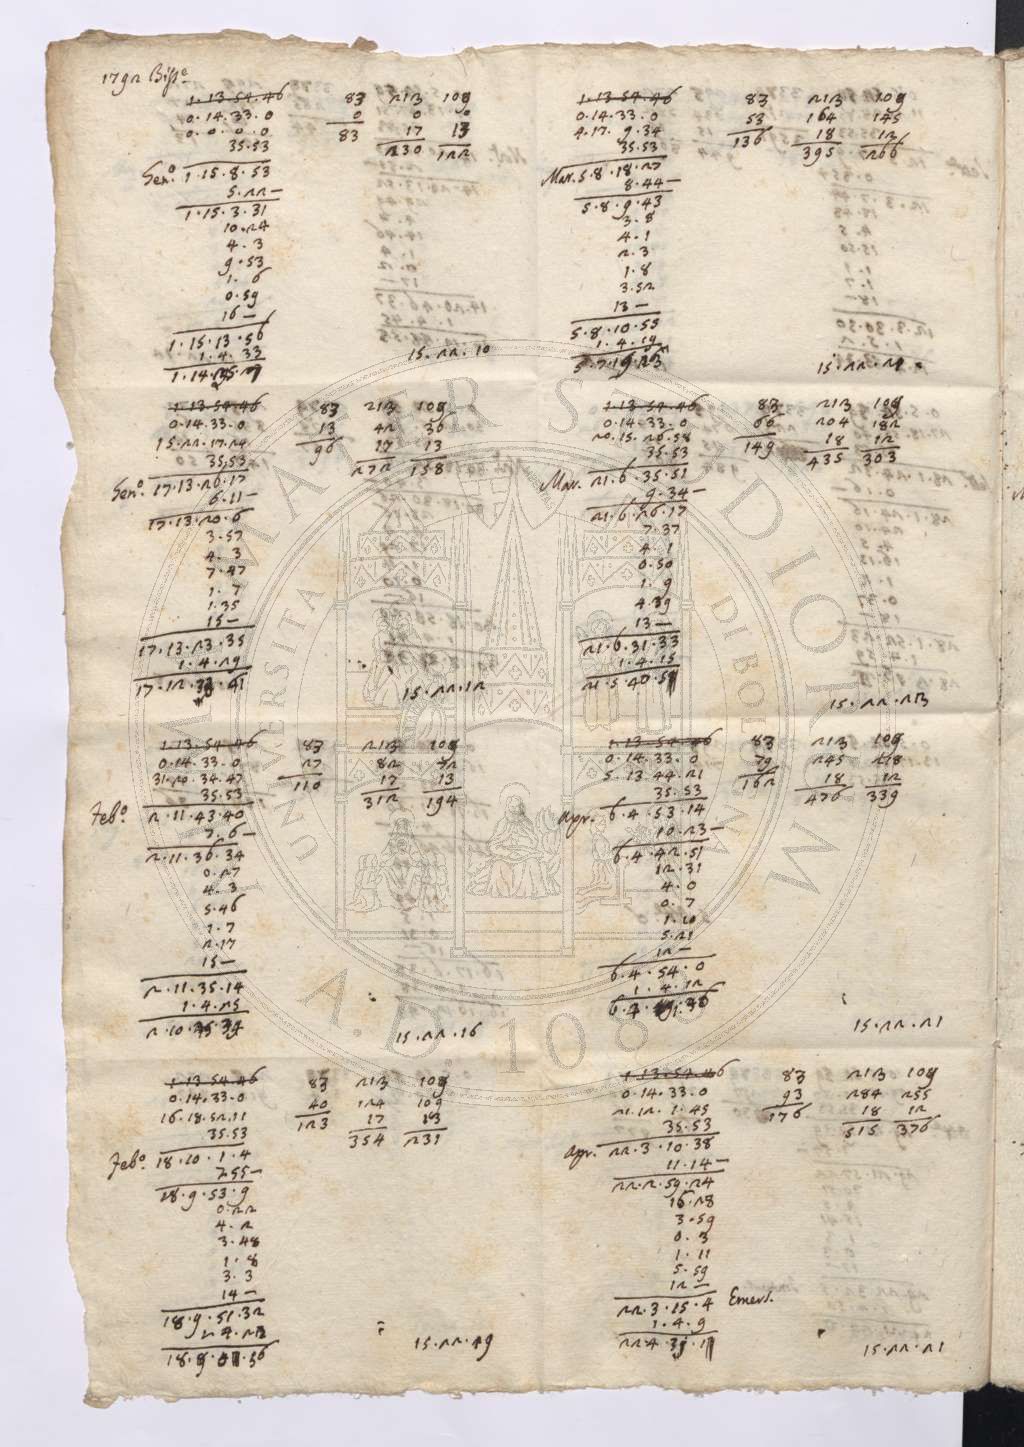 1792 Bisse.
1.13.54.46 83 213 109
0.14.33.0 0 0 0
0.0.0.0 83 17 13
35.53 230 122
Gen.o 1.15.8.53
5.22 —
1.15.3.31
10.24
4.3
9.53
1.6
0.59
16 —
1.15.13.56
1.4.33
15.22.10
1.13.54.46 83 213 109
0.14.33.0 13 42 36
15.22.17.24 96 17 13
35.53 272 158
Gen.o 17.13.26.17
6.11 —
17.13.20.6
3.57
4.3
7.47
1.7
1.35
15 —
17.13.23.35
1.4.29
15.22.12
1.13.54.46 83 213 109
0.14.33.0 27 82 72
31.20.34.47 110 17 13
35.53 312 194
Feb.o 2.11.43.40
7.6 —
2.11.36.34
0.27
4.3
5.46
1.7
2.17
15 —
2.11.35.14
1.4.25
15.22.16
1.13.54.46 83 213 109
0.14.33.0 40 124 109
16.18.52.11 123 17 13
35.53 354 231
Feb.o 18.20.1.4
7.55 —
18.9.53.9
0.22
4.2
3.48
1.8
3.3
14 —
18.9.51.32
15.22.49
1.13.54.46 83 213 109
0.14.33.0 53 164 145
4.17.9.34 136 18 12
35.53 395 266
Mar. 5.8.18.27
8.44 —
5.8.9.43
3.8
4.1
2.3
1.8
3.52
13 —
5.8.10.55
1.4.19
1.13.54.46 83 213 109
0.14.33.0 66 204 182
20.15.26.58 149 18 12
35.53 435 303
Mar. 21.6.35.51
9.34 —
21.6.26.17
7.37
4.1
0.50
1.9
4.39
13 —
21.6.31.33
1.4.15
15.22.23
1.13.54.46 83 213 109
0.14.33.0 79 245 218
5.13.44.21 162 18 12
35.53 476 339
Apr. 6.4.53.14
10.23 —
6.4.42.51
12.31
4.0
0.7
1.10
5.21
12 —
6.4.54.0
1.4.12
15.22.21
1.13.54.46 83 213 109
0.14.33.0 93 284 255
21.12.1.45 176 18 12
35.53 515 376
Apr. 22.3.10.38
11.14 —
22.2.59.24
16.28
3.59
0.3
1.11
5.59
12 —
22.3.15.4 Emers.
1.4.9
15.22.21
UNIVERSITA DI BOLOGNA
A.D. 1088